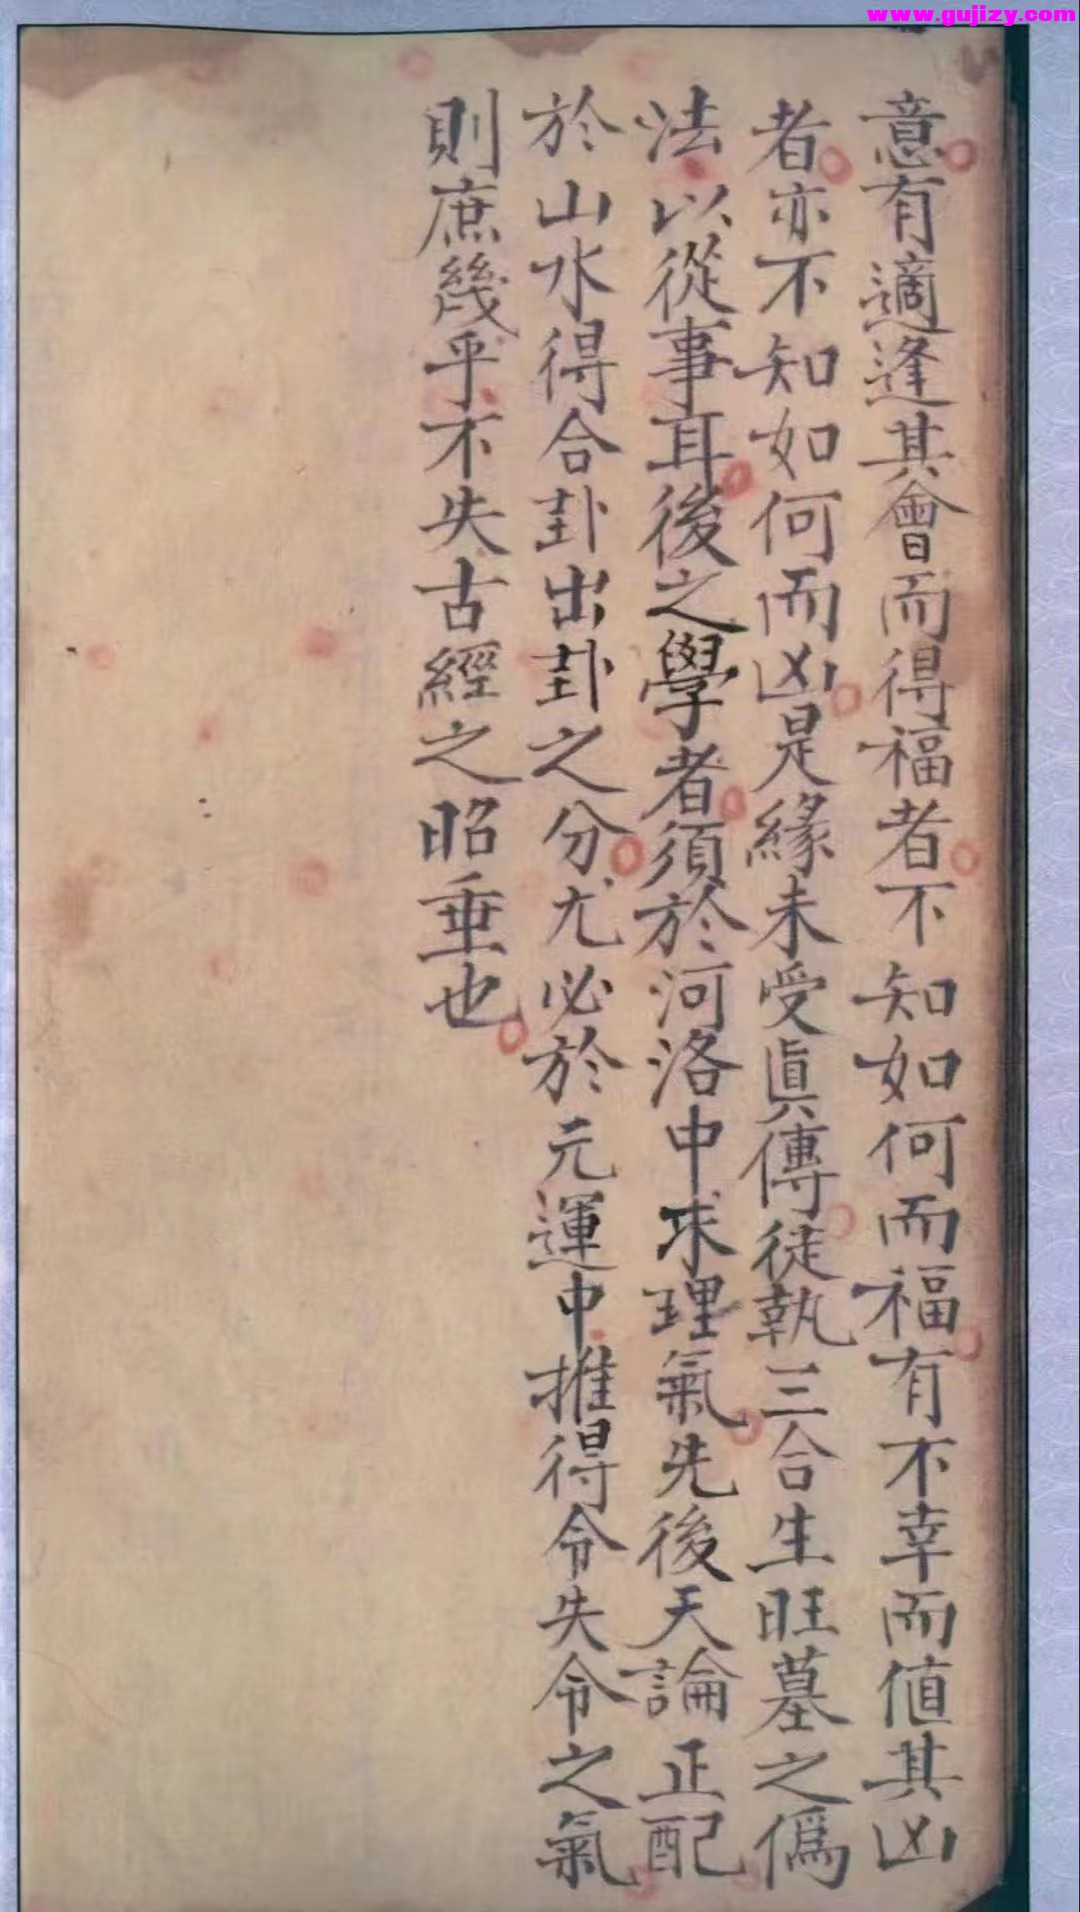 www.gujizy.com
意有適逢其會而得福者不知如何而福有不幸而值其凶
者亦不知如何而凶是緣未受眞傳徒執三合生旺墓之僞
法以從事耳後之學者須於河洛中求理氣先後天論正配
於山水得合卦出卦之分尤必於元運中推得令失令之氣
則庶幾乎不失古經之昭垂也